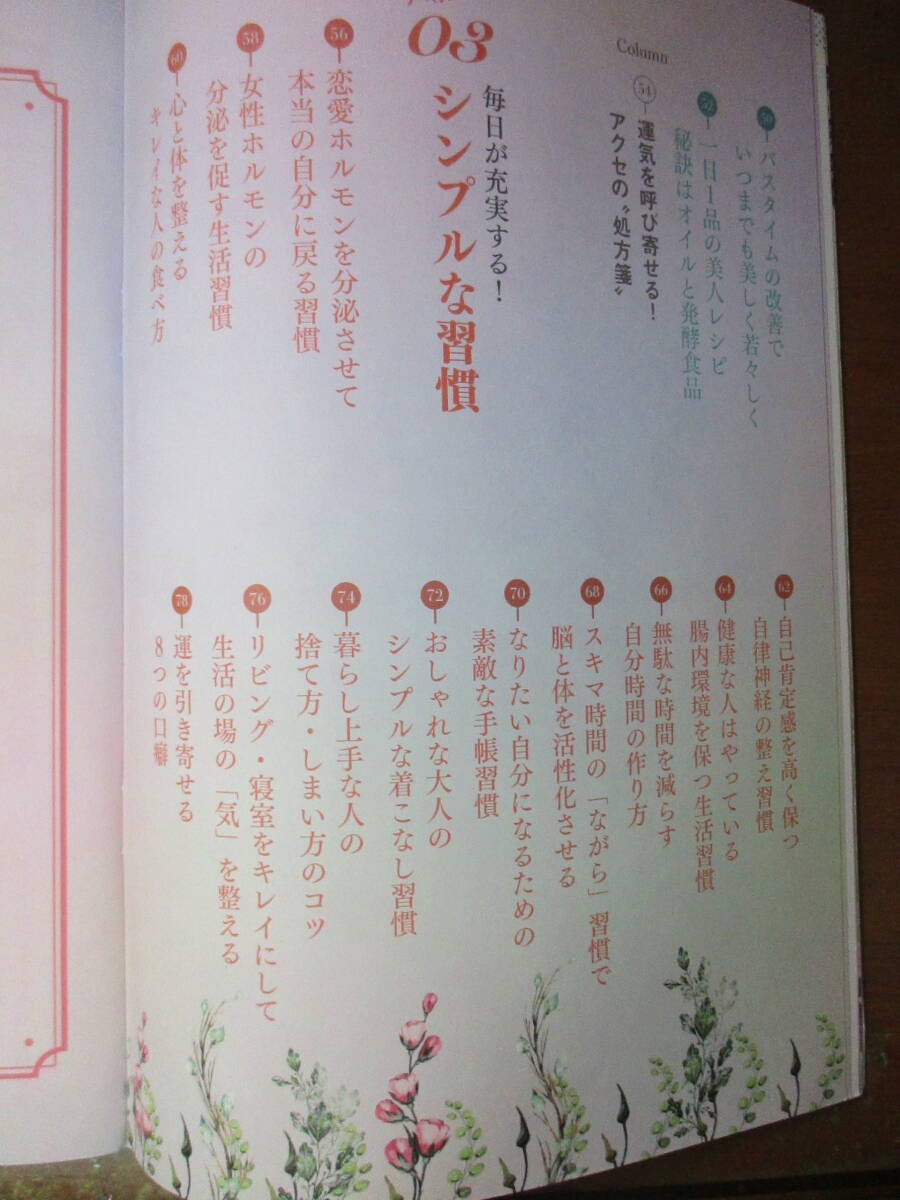 50
バスタイムの改善で
いつまでも美しく若々しく
52
一日1品の美人レシピ
秘訣はオイルと発酵食品
Column
54
運気を呼び寄せる！
アクセの〝処方箋〟
03
毎日が充実する！
シンプルな習慣
56
恋愛ホルモンを分泌させて
本当の自分に戻る習慣
58
女性ホルモンの
分泌を促す生活習慣
60
心と体を整える
キレイな人の食べ方
62
自己肯定感を高く保つ
自律神経の整え習慣
64
健康な人はやっている
腸内環境を保つ生活習慣
66
無駄な時間を減らす
自分時間の作り方
68
スキマ時間の「ながら」習慣で
脳と体を活性化させる
70
なりたい自分になるための
素敵な手帳習慣
72
おしゃれな大人の
シンプルな着こなし習慣
74
暮らし上手な人の
捨て方・しまい方のコツ
76
リビング・寝室をキレイにして
生活の場の「気」を整える
78
運を引き寄せる
8つの口癖